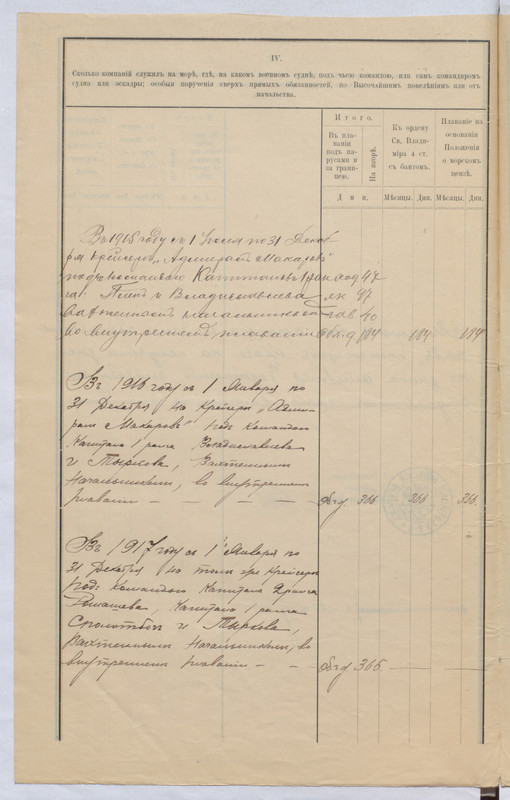 IV.
Сколько компаній служилъ на морѣ, гдѣ, на какомъ военномъ суднѣ, подъ чьею командою, или самъ командиромъ
судна или эскадры; особыя порученія сверхъ прямыхъ обязанностей, по Высочайшимъ повелѣніямъ или отъ
начальства.
Итого.
Въ пла-
ваніи
подъ па-
русами и
за грани-
цею.
На якорѣ.
Къ ордену
Св. Влади-
міра 4 ст.
съ бантомъ.
Плаваніе на
основаніи
Положенія
о морскомъ
цензѣ.
Дни.
Мѣсяцы. Дни. Мѣсяцы. Дни.
Въ 1915 году съ 1 Іюля по 31 Декаб-
ря крейсеръ „Адмиралъ Макаровъ"
подъ командою Капитановъ 1 ран ход 47
га и Владиславлева як 97
вахтеннымъ начальникомъ гав 40
во внутреннемъ плаваніи общ 184 184 184
Въ 1916 году съ 1 Января по
31 Декабря на крейсерѣ „Адми-
ралъ Макаровъ" подъ командою
Капитана 1 ранга Владиславлева
и Тыркова, Вахтеннымъ
Начальникомъ, во внутреннемъ
плаваніи — — — — — общ 366 366 366
Въ 1917 году съ 1 Января по
31 Декабря на томъ же крейсерѣ
подъ командою Капитана 2 ранга
Ромашева, Капитана 1 ранга
и Тыркова,
Вахтеннымъ Начальникомъ, во
внутреннемъ плаваніи — — общ 365 — — — —